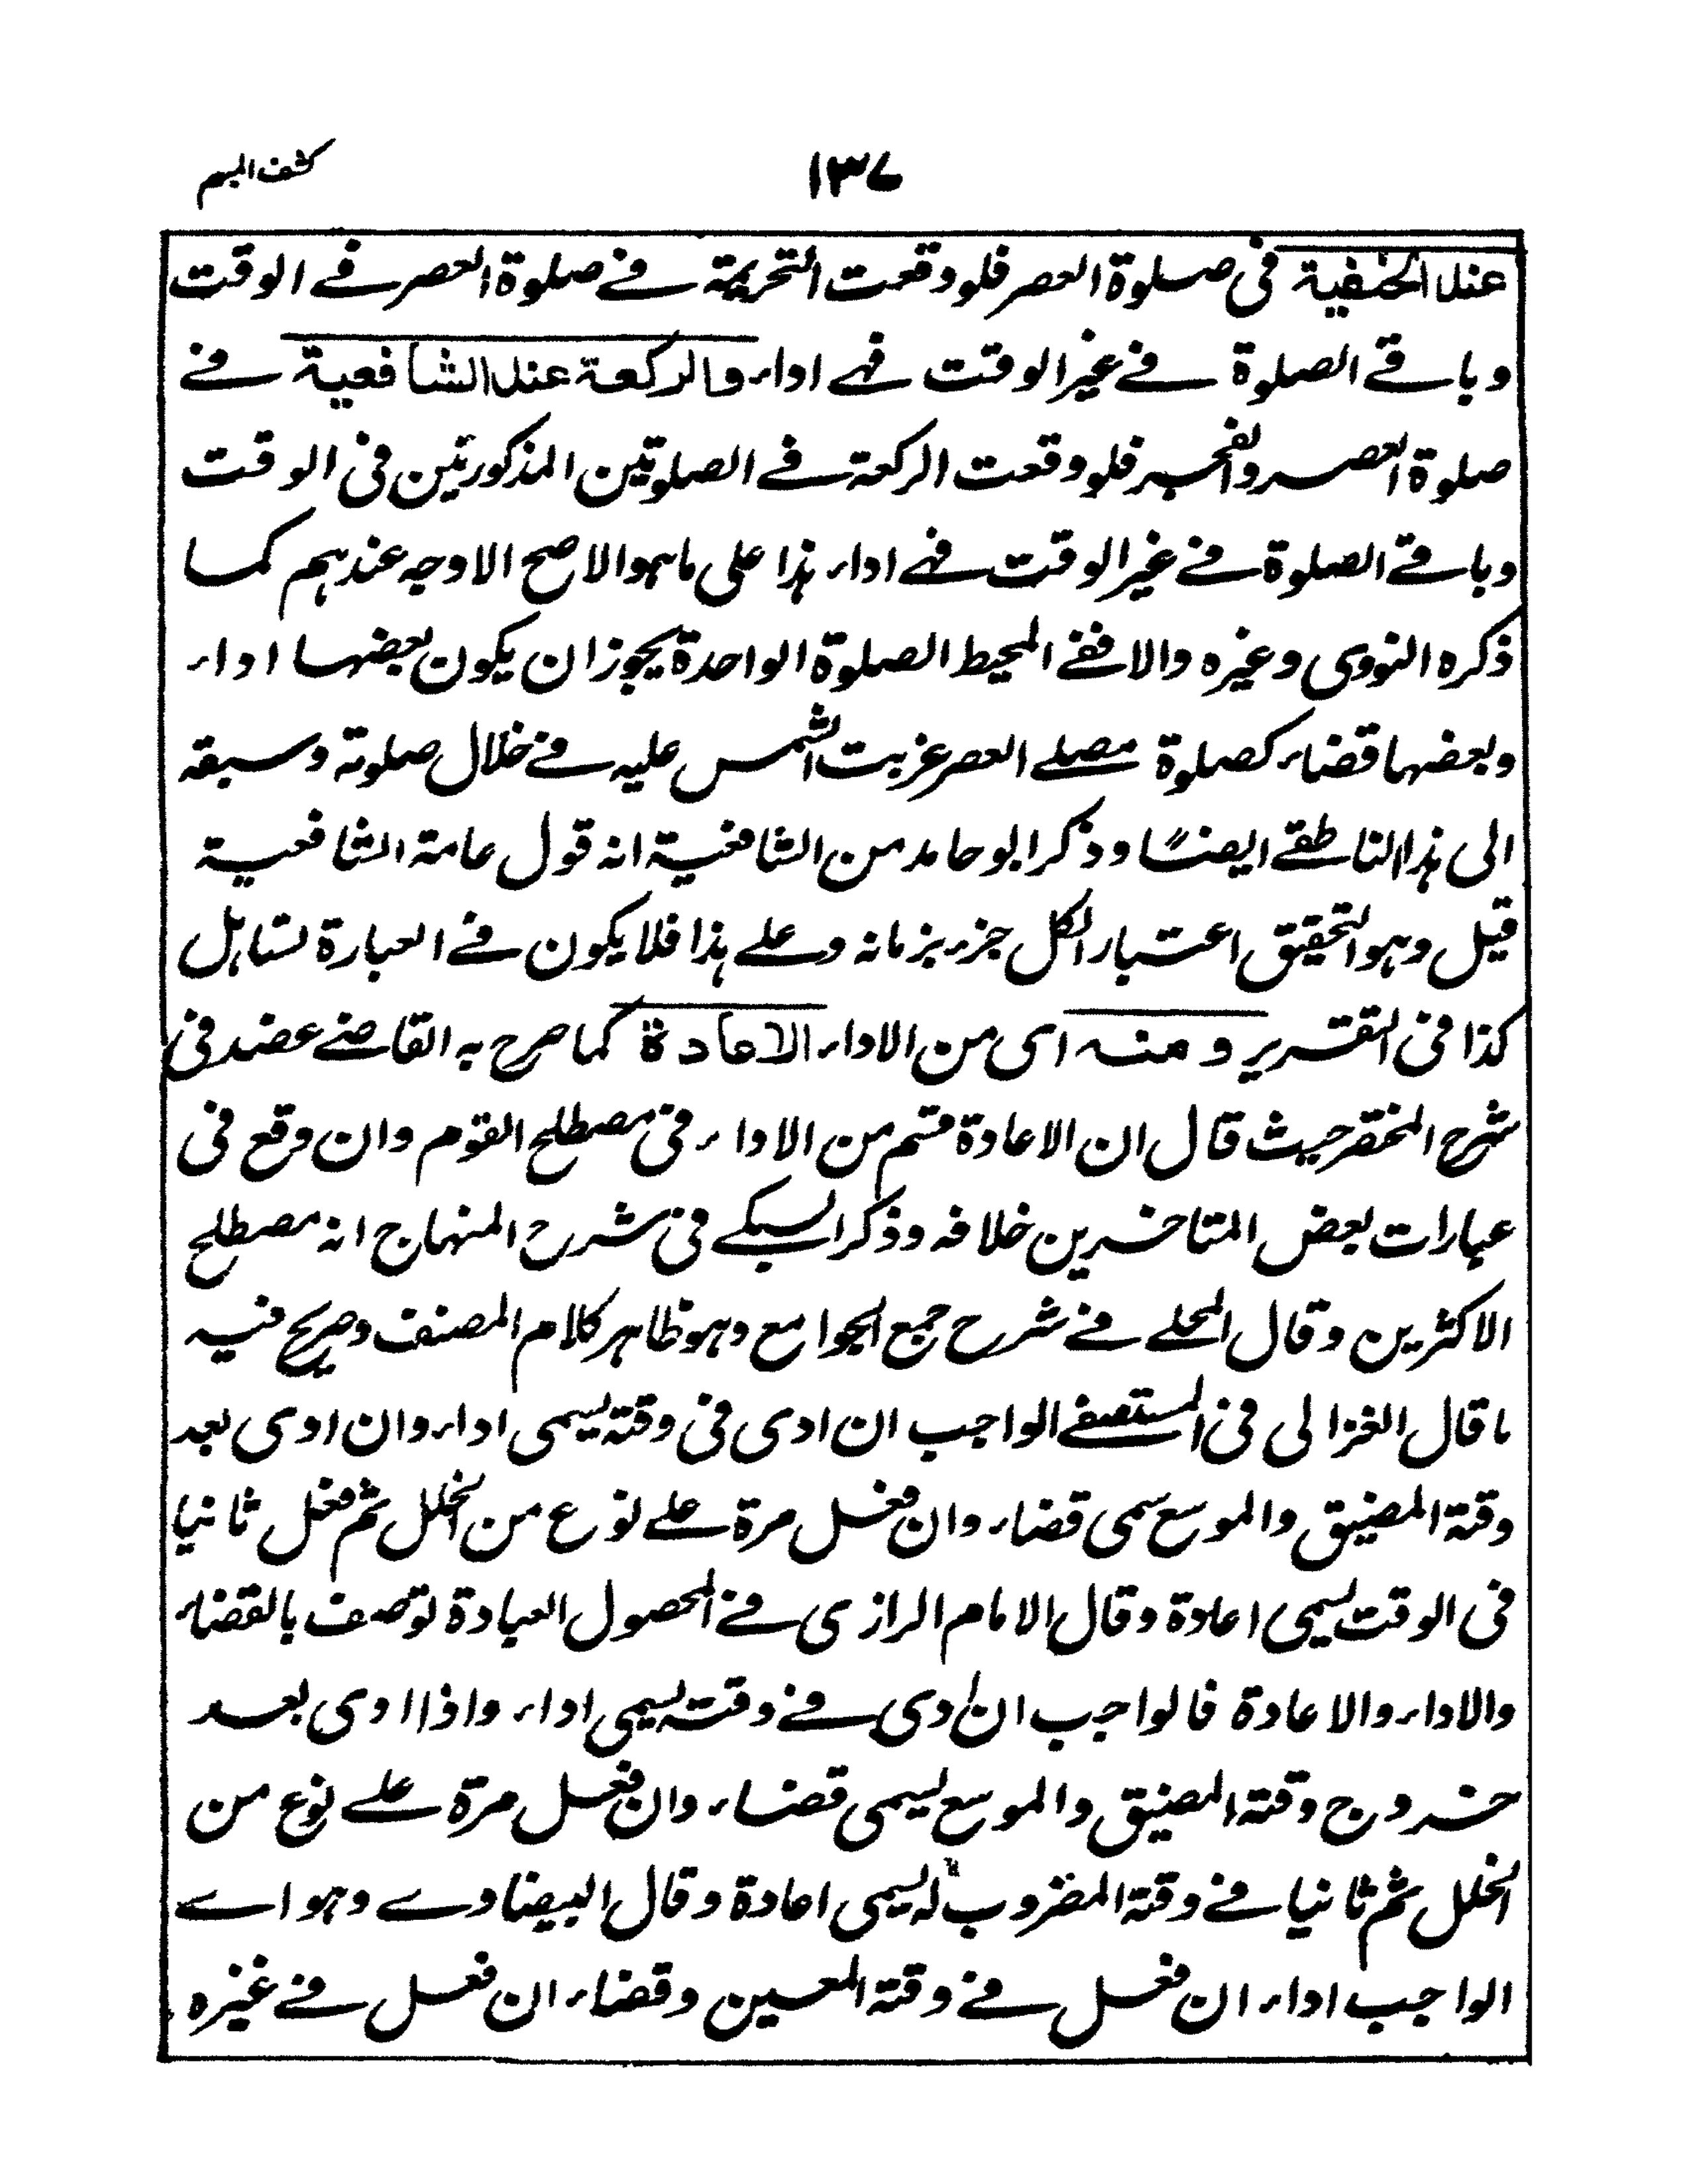 كشف المبهم
١٣٧
عند الحنفية فى صلوة العصر فلو وقعت التحريمة فے صلوة العصر فے الوقت
وباقے الصلوة فے غير الوقت فهے اداء والركعة عند الشافعية فے
صلوة العصر والفجر فلو وقعت الركعة فے الصلوتين المذكورتين فى الوقت
وباقے الصلوة فے غير الوقت فهے اداء هذا على ما هو الاصح الاوجه عندهم كما
ذكره النووى وغيره والا ففے المحيط الصلوة الواحدة يجوز ان يكون بعضها اداء
وبعضها قضاء كصلوة مصلے العصر غربت الشمس عليه فے خلال صلوته وسبقه
الى هذا الناطقے ايضًا وذكر ابو حامد من الشافعية انه قول عامة الشافعية
قيل وهو التحقيق اعتبار الكل جزء بزمانه وعلے هذا فلا يكون فے العبارة تساهل
كذا فى التقرير ومنه اى من الاداء الاعادة كما صرح به القاضے عضد فى
شرح المختصر حيث قال ان الاعادة قسم من الاداء فى مصطلح القوم وان وقع فى
عبارات بعض المتاخرين خلافه وذكر السبكے فى شرح المنهاج انه مصطلح
الاكثرين وقال المحلے فے شرح جمع الجوامع وهو ظاهر كلام المصنف وصريح فيه
ما قال الغزالى فى المستصفے الواجب ان ادى فى وقته يسمى اداء وان ادى بعد
وقته المضيق والموسع سمى قضاء وان فعل مرة علے نوع من الخلل ثم فعل ثانيا
فى الوقت يسمى اعادة وقال الامام الرازى فے المحصول العبادة توصف بالقضاء
والاداء والاعادة فالواجب ان ادى فے وقته يسمى اداء واذا ادى بعد
خروج وقته المضيق والموسع يسمى قضاء وان فعل مرة علے نوع من
الخلل ثم ثانيا فے وقته المضروب له يسمى اعادة وقال البيضاوے وهو اے
الواجب اداء ان فعل فے وقته المعين وقضاء ان فعل فے غيره